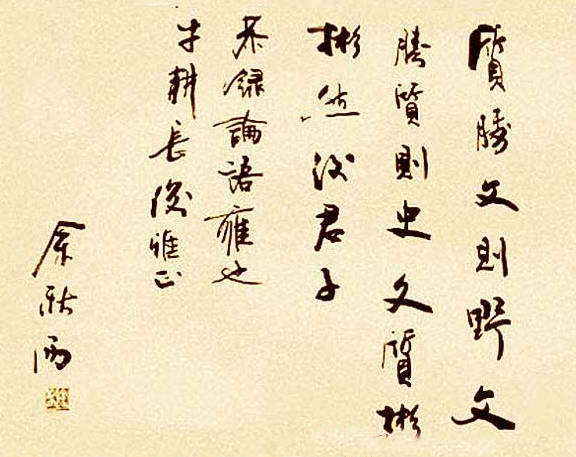 質勝文則野文
勝質則史文質彬
彬然後君子
恭錄論語雍也
耕長俊雅正
余秋雨